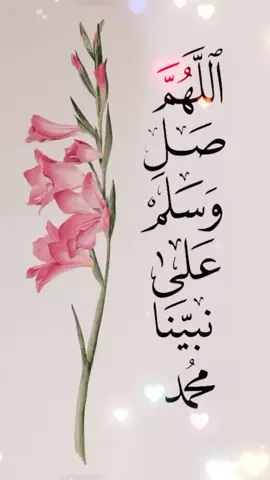 ٱللَّهُمَّ
صَلِ
وَسَلِمْ
عَلَىٰ
نَبِيِّنَا
مُحَمَّد